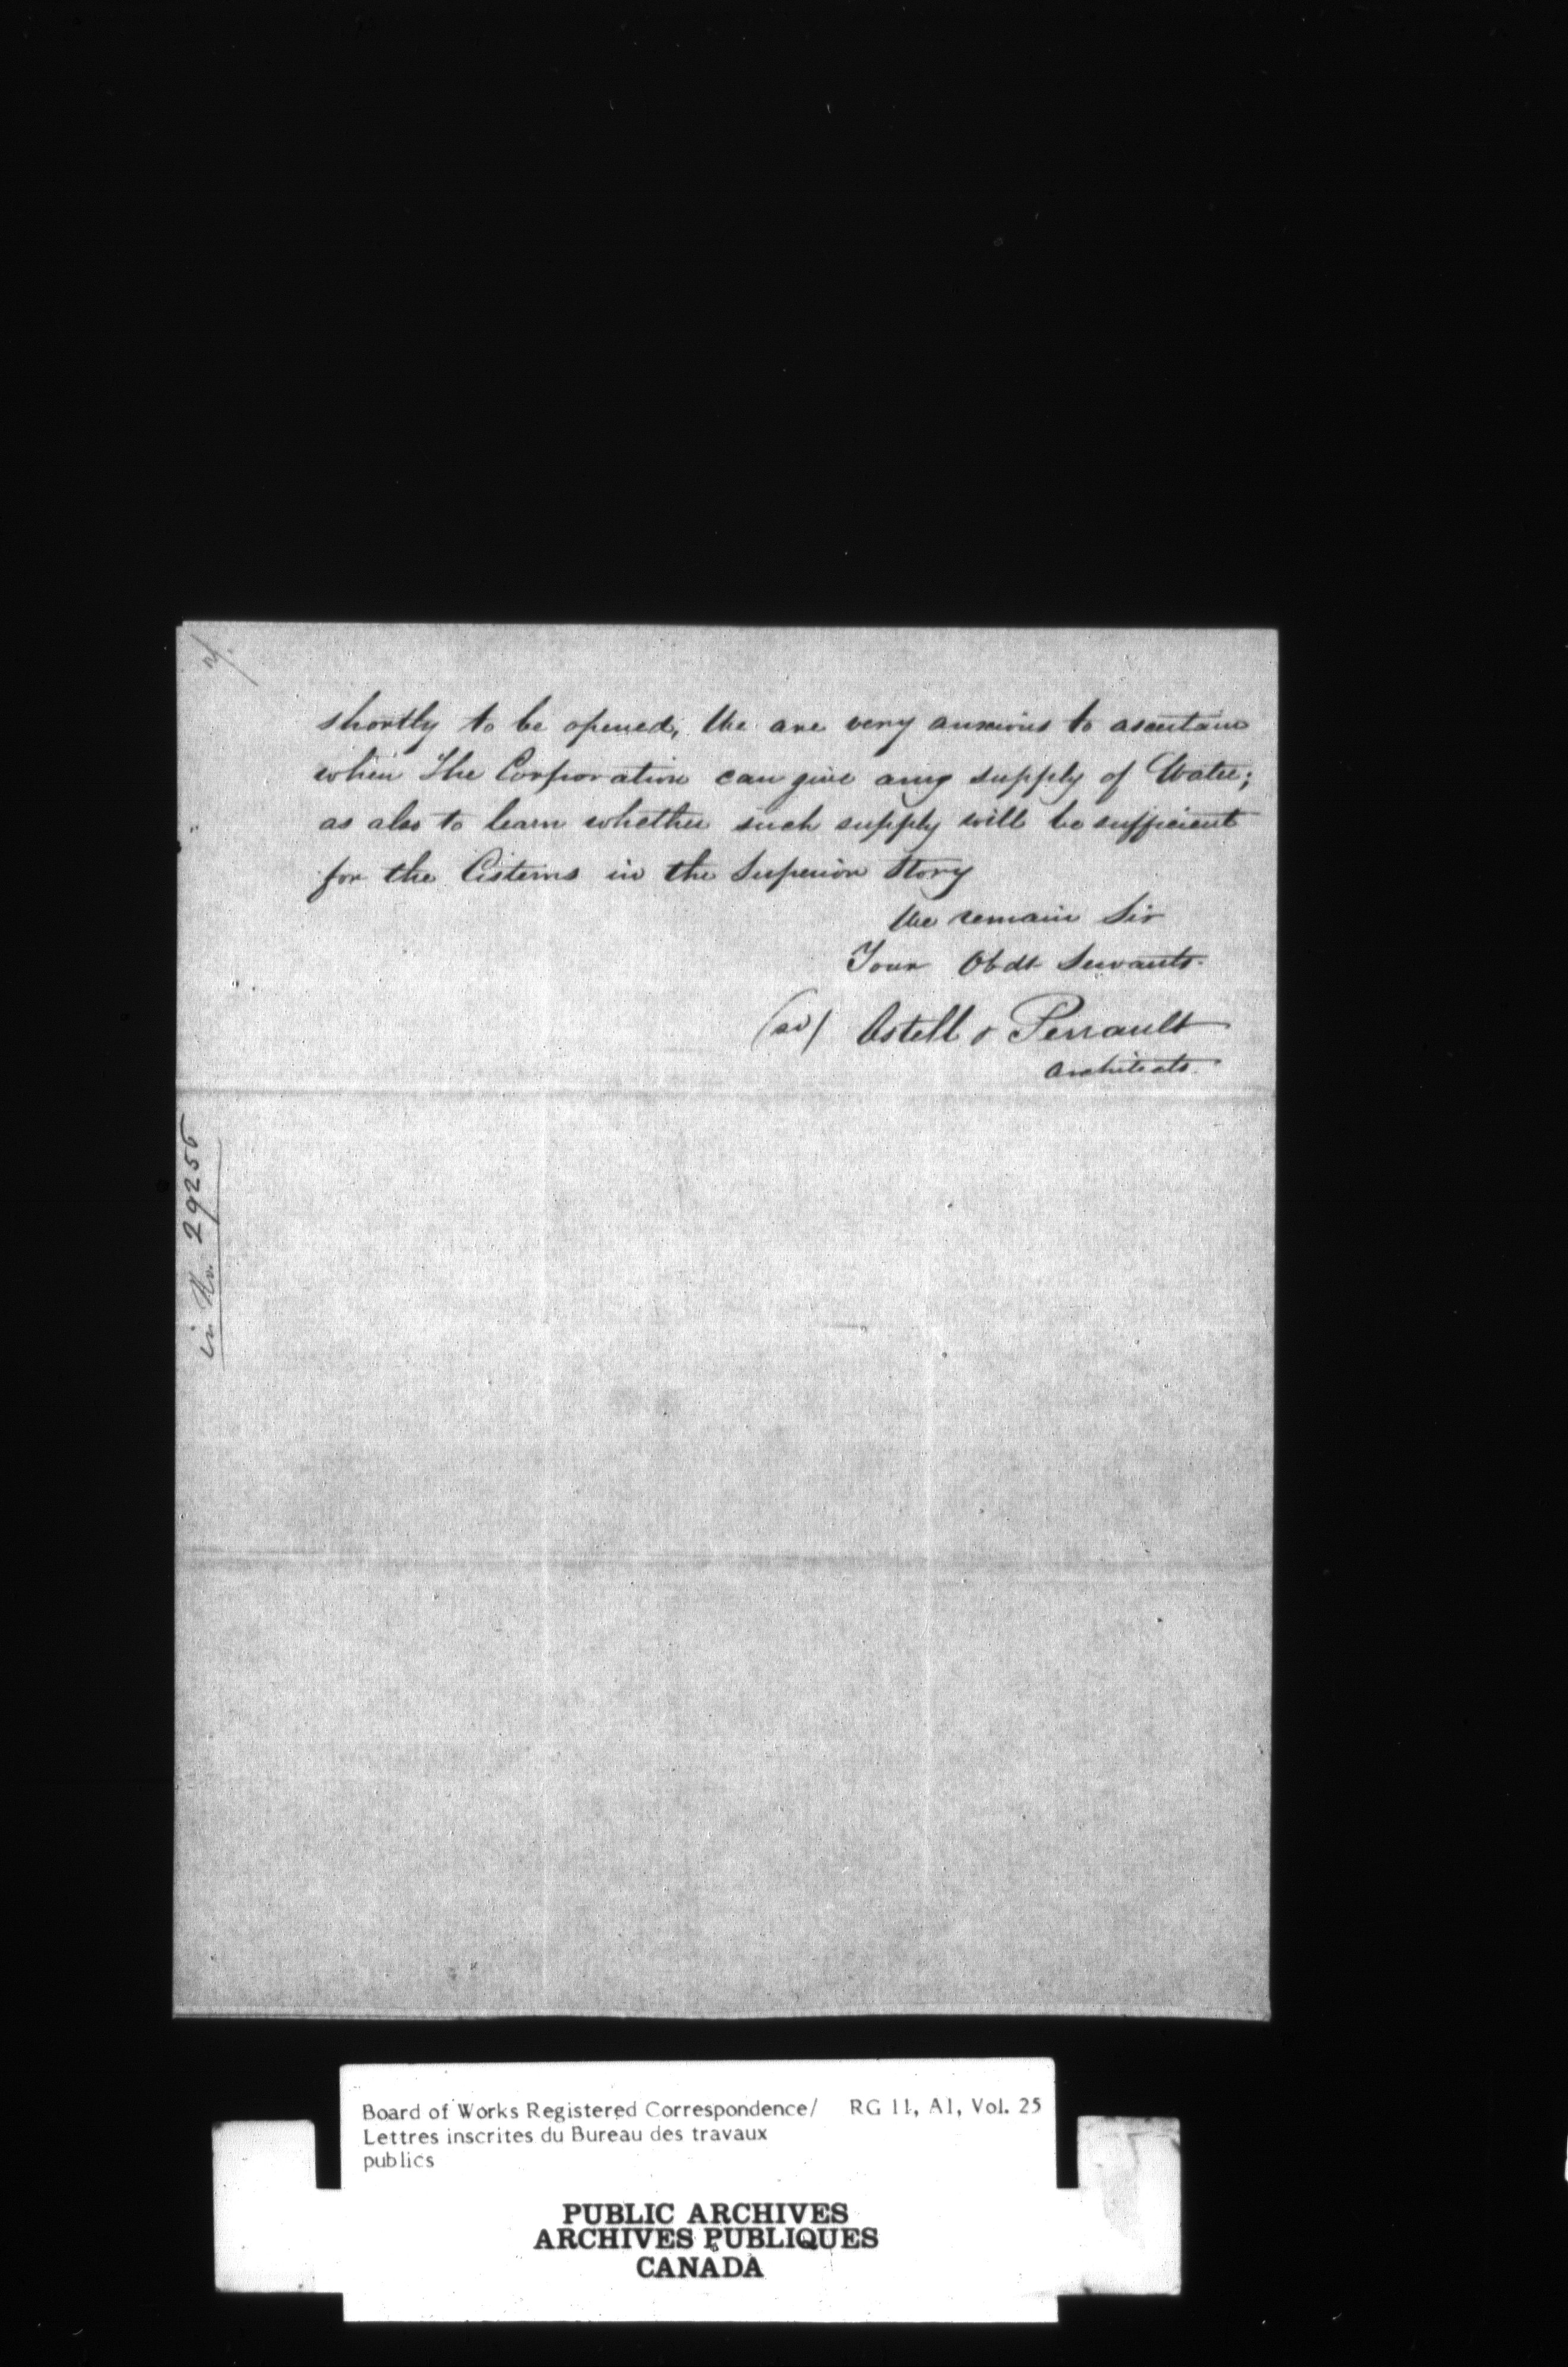 shortly to be opened, We are very anxious to ascertain
when The Corporation can give any supply of Water;
as also to learn whether such supply will be sufficient
for the Cisterns in the Superior Story
We remain Sir
Your Obdt Servants.
(sd) Ostell & Perrault
Architects.
in No. 29255
Board of Works Registered Correspondence/ RG 11, A1, Vol. 25
Lettres inscrites du Bureau des travaux
publics
PUBLIC ARCHIVES
ARCHIVES PUBLIQUES
CANADA